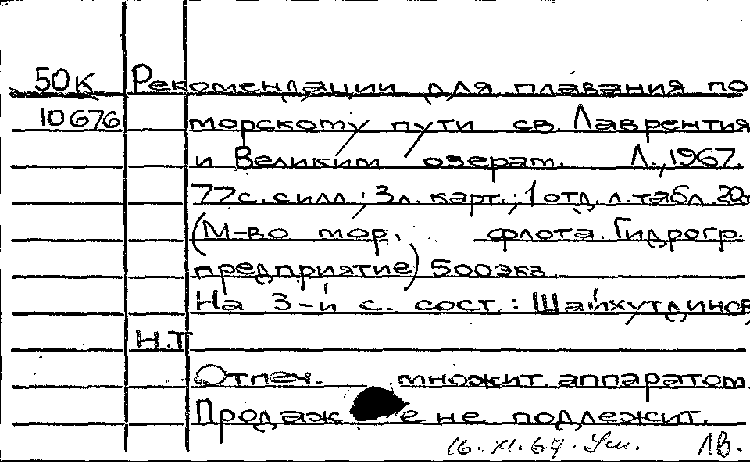 50К Рекомендации для плавания по
10676 морскому пути св. Лаврентия
и Великим озерам. Л., 1967.
77с. с илл.; 3л. карт.; 1 отд. л. табл. 20
(М-во мор. флота. Гидрогр.
предприятие) 500экз.
На 3-й с. сост.: Шайхутдинов
Н.Т
Отпеч. множит. аппаратом
Продаже не подлежит.
16.XI.67. ЛВ.